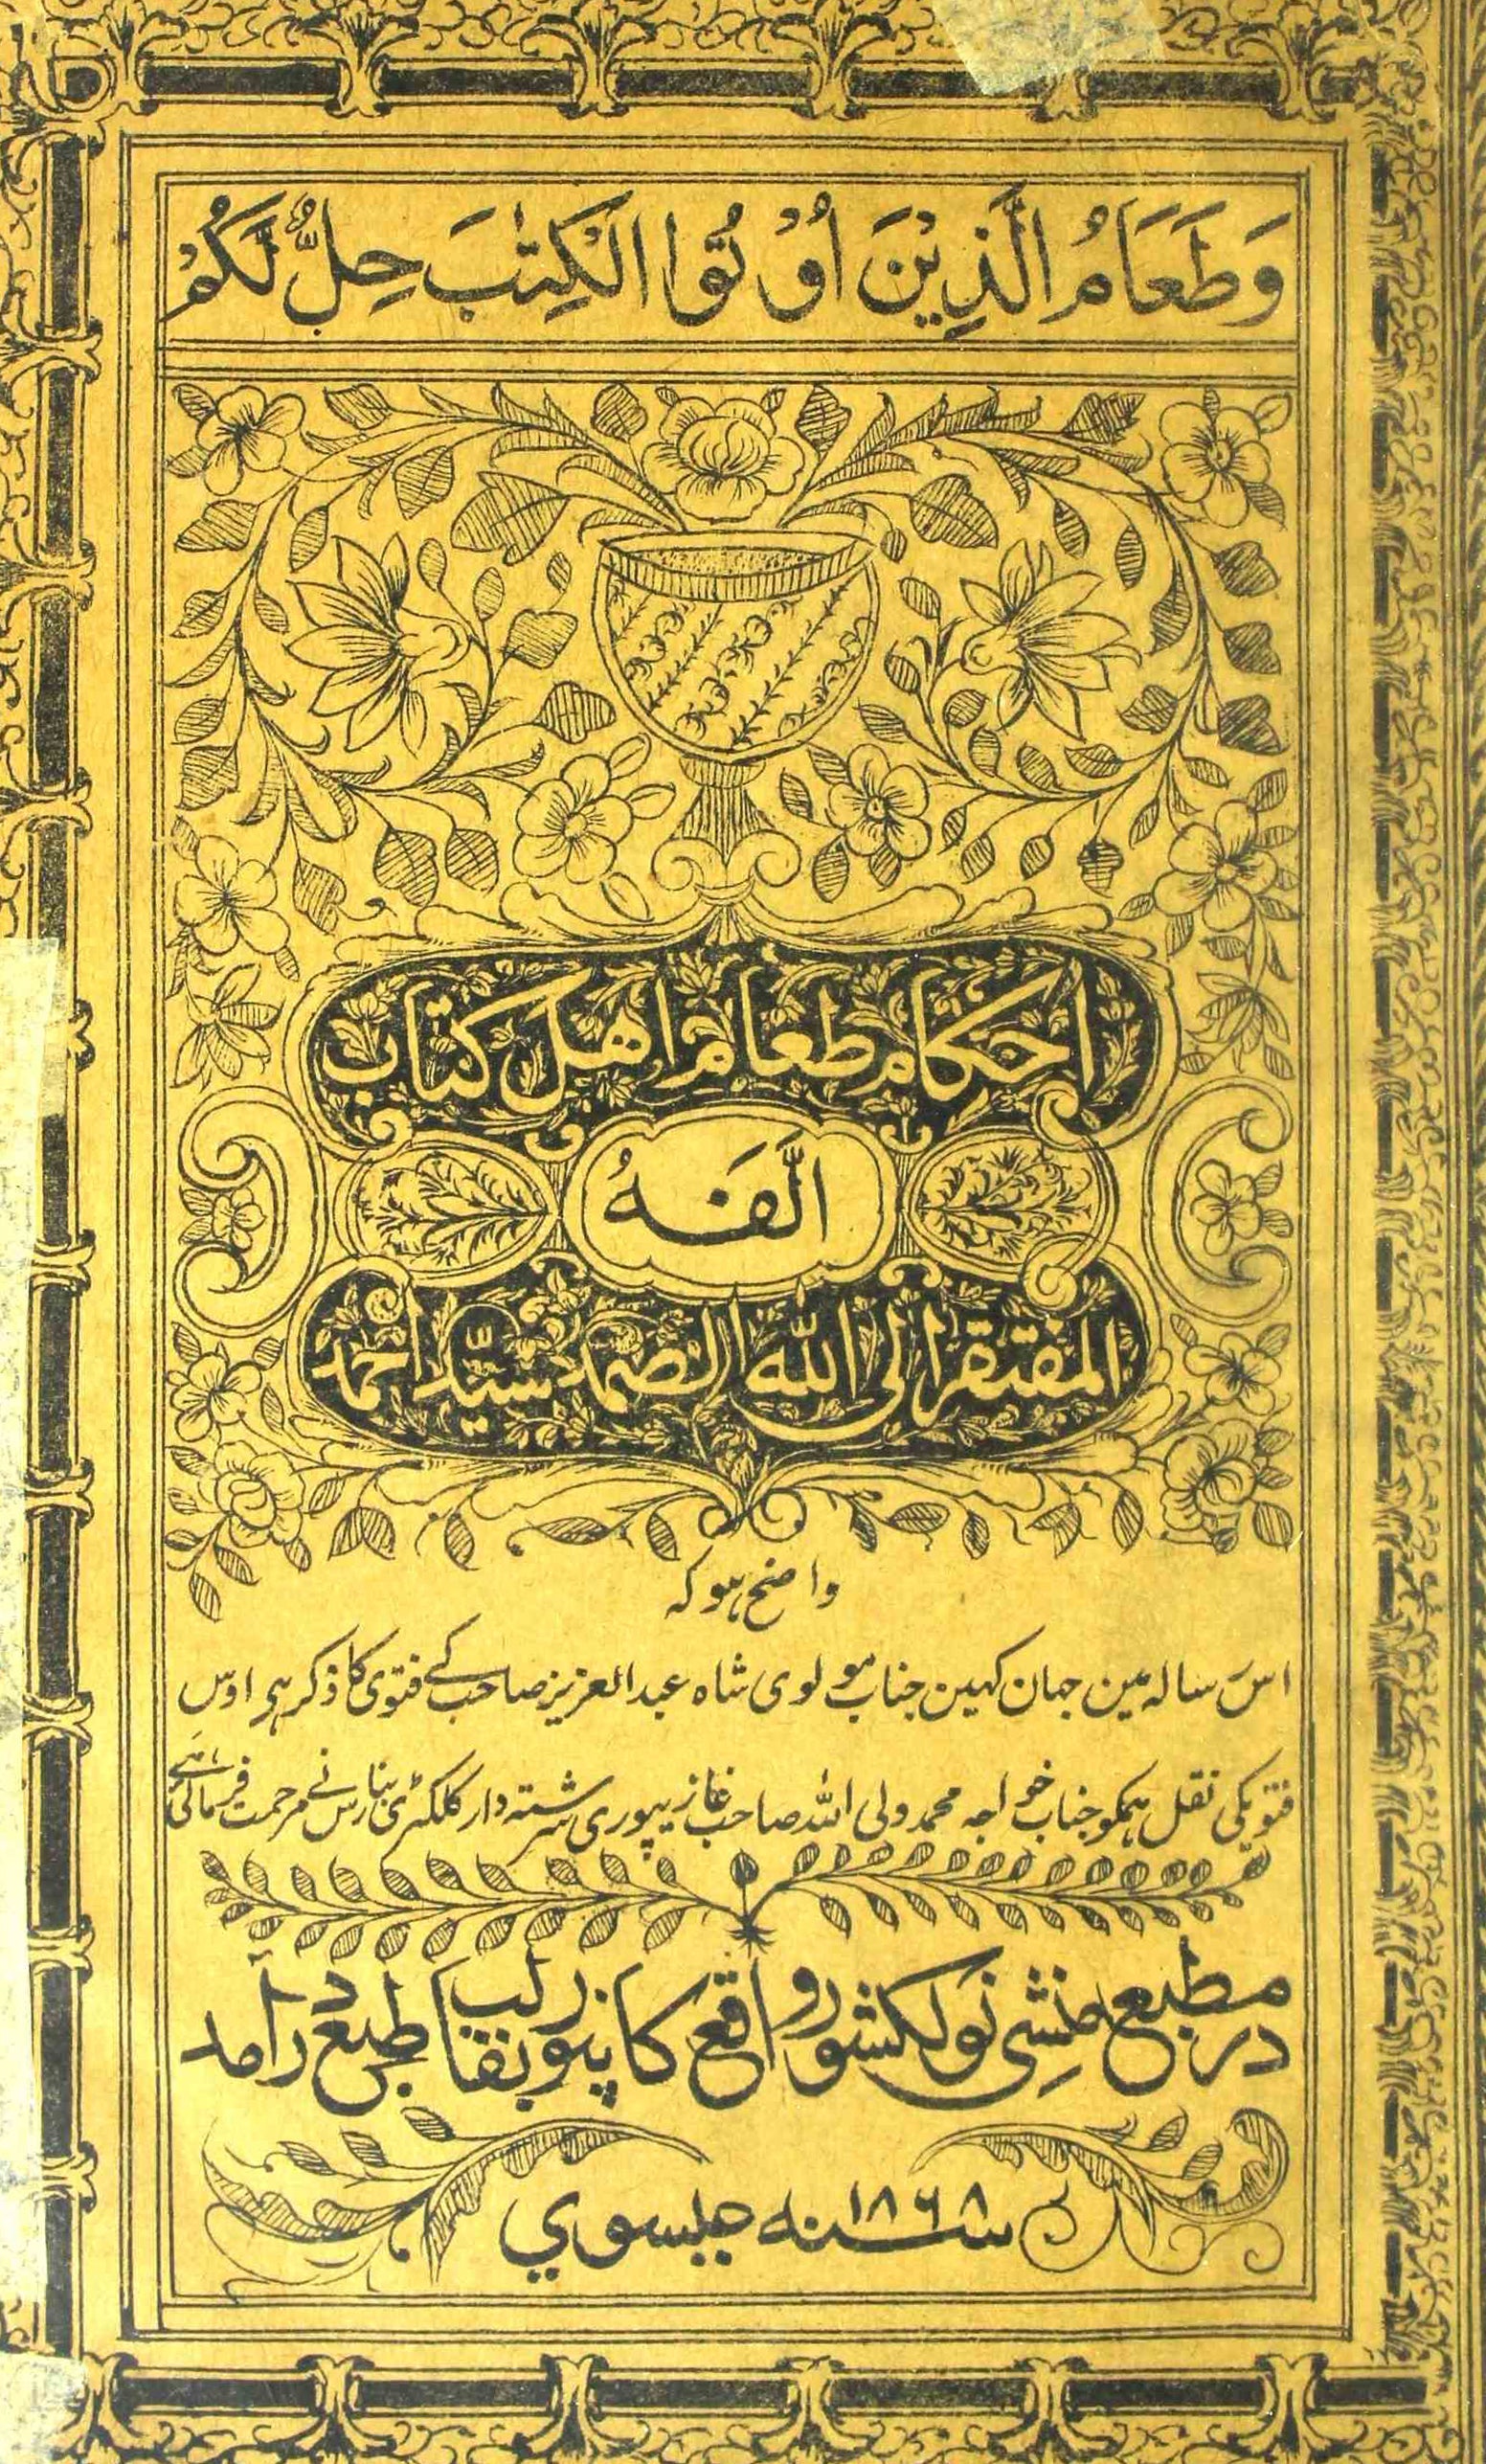 وَطَعَامُ الَّذِیْنَ اُوْتُوا الْکِتٰبَ حِلٌّ لَّکُمْ
احکام طعام اهل کتاب
الَّفَهُ
المفتقر الی اللّٰه الصمد سیّد احمد
واضح ہو کہ
اس رسالہ مین جہان کہین جناب مولوی شاہ عبدالعزیز صاحب کے فتوی کا ذکر ہی اوس
فتویکی نقل ہمکو جناب خواجہ محمد ولی اللّٰہ صاحب غازیپوری سرشتہ دار کلکٹری بنارس نے مرحمت فرمائی ہے
در مطبع منشی نولکشور واقع کانپور بقالب طبع درآمد
سنه ۱۸۶۸ عیسوي